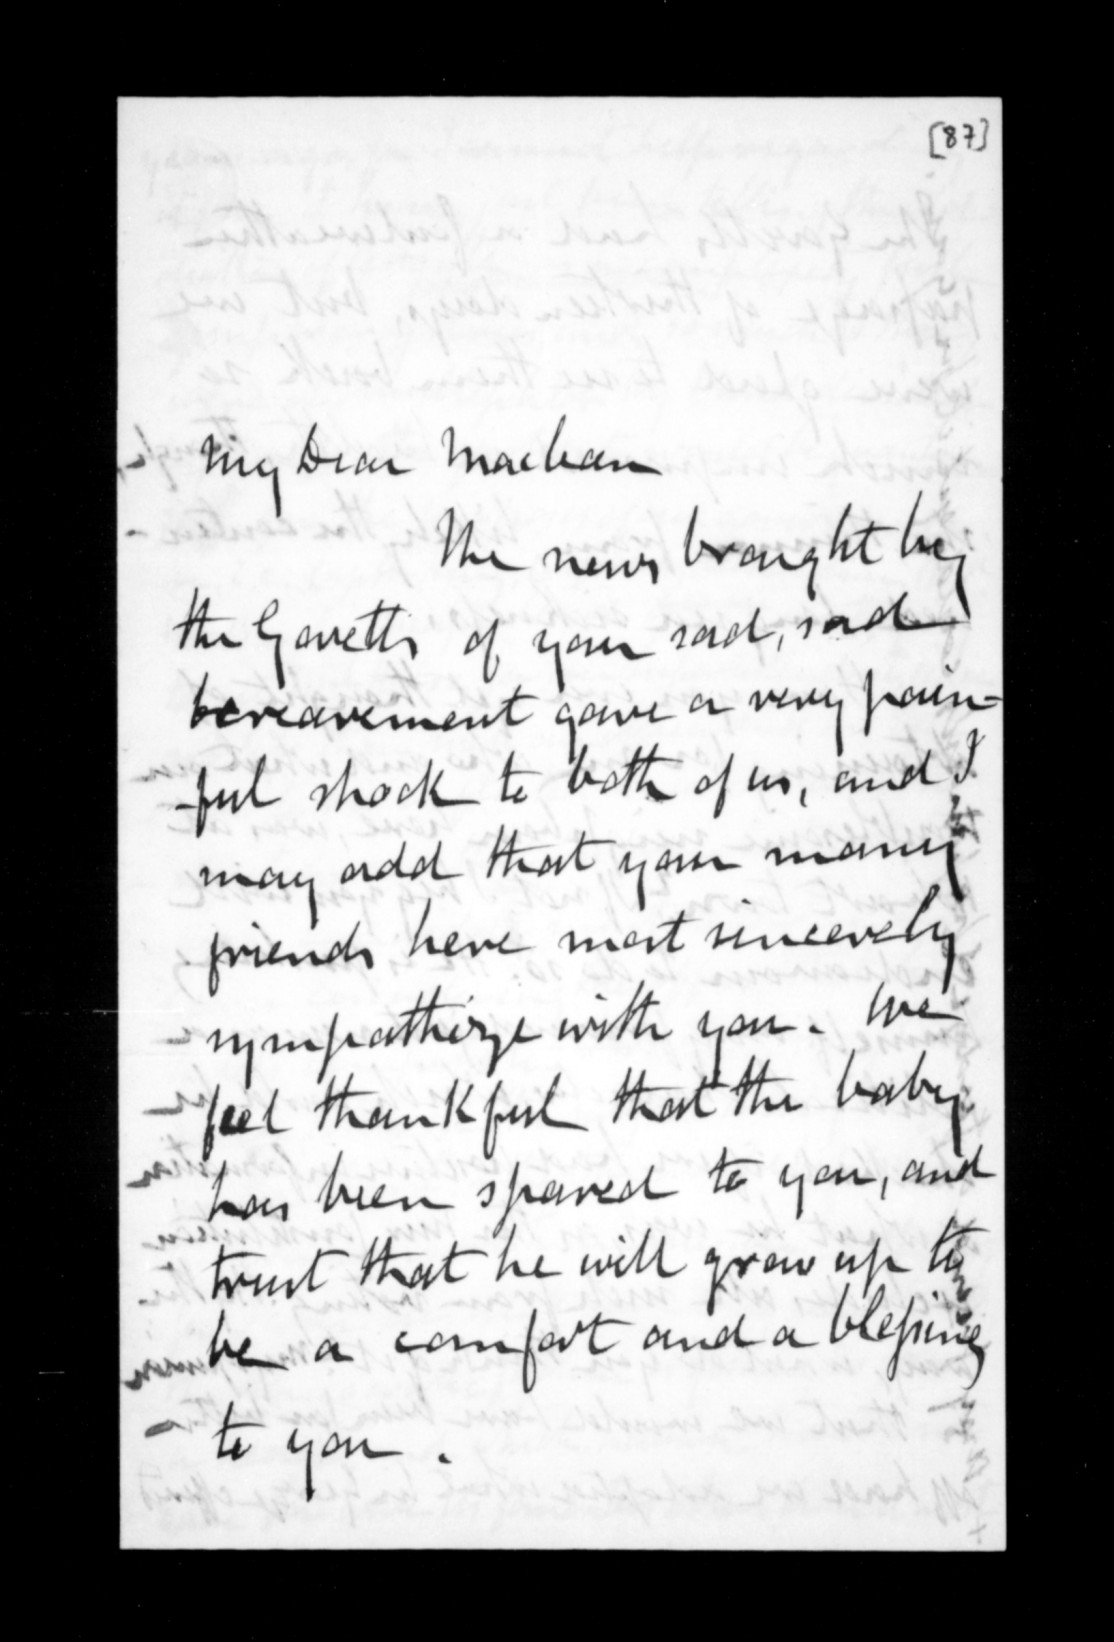 [87]
My Dear Maclean
The news brought by
the Govetts of your sad, sad
bereavement gave a very pain-
-ful shock to both of us, and I
may add that your many
friends here most sincerely
sympathize with you. We
feel thankful that the baby
has been spared to you, and
trust that he will grow up to
be a comfort and a blessing
to you.